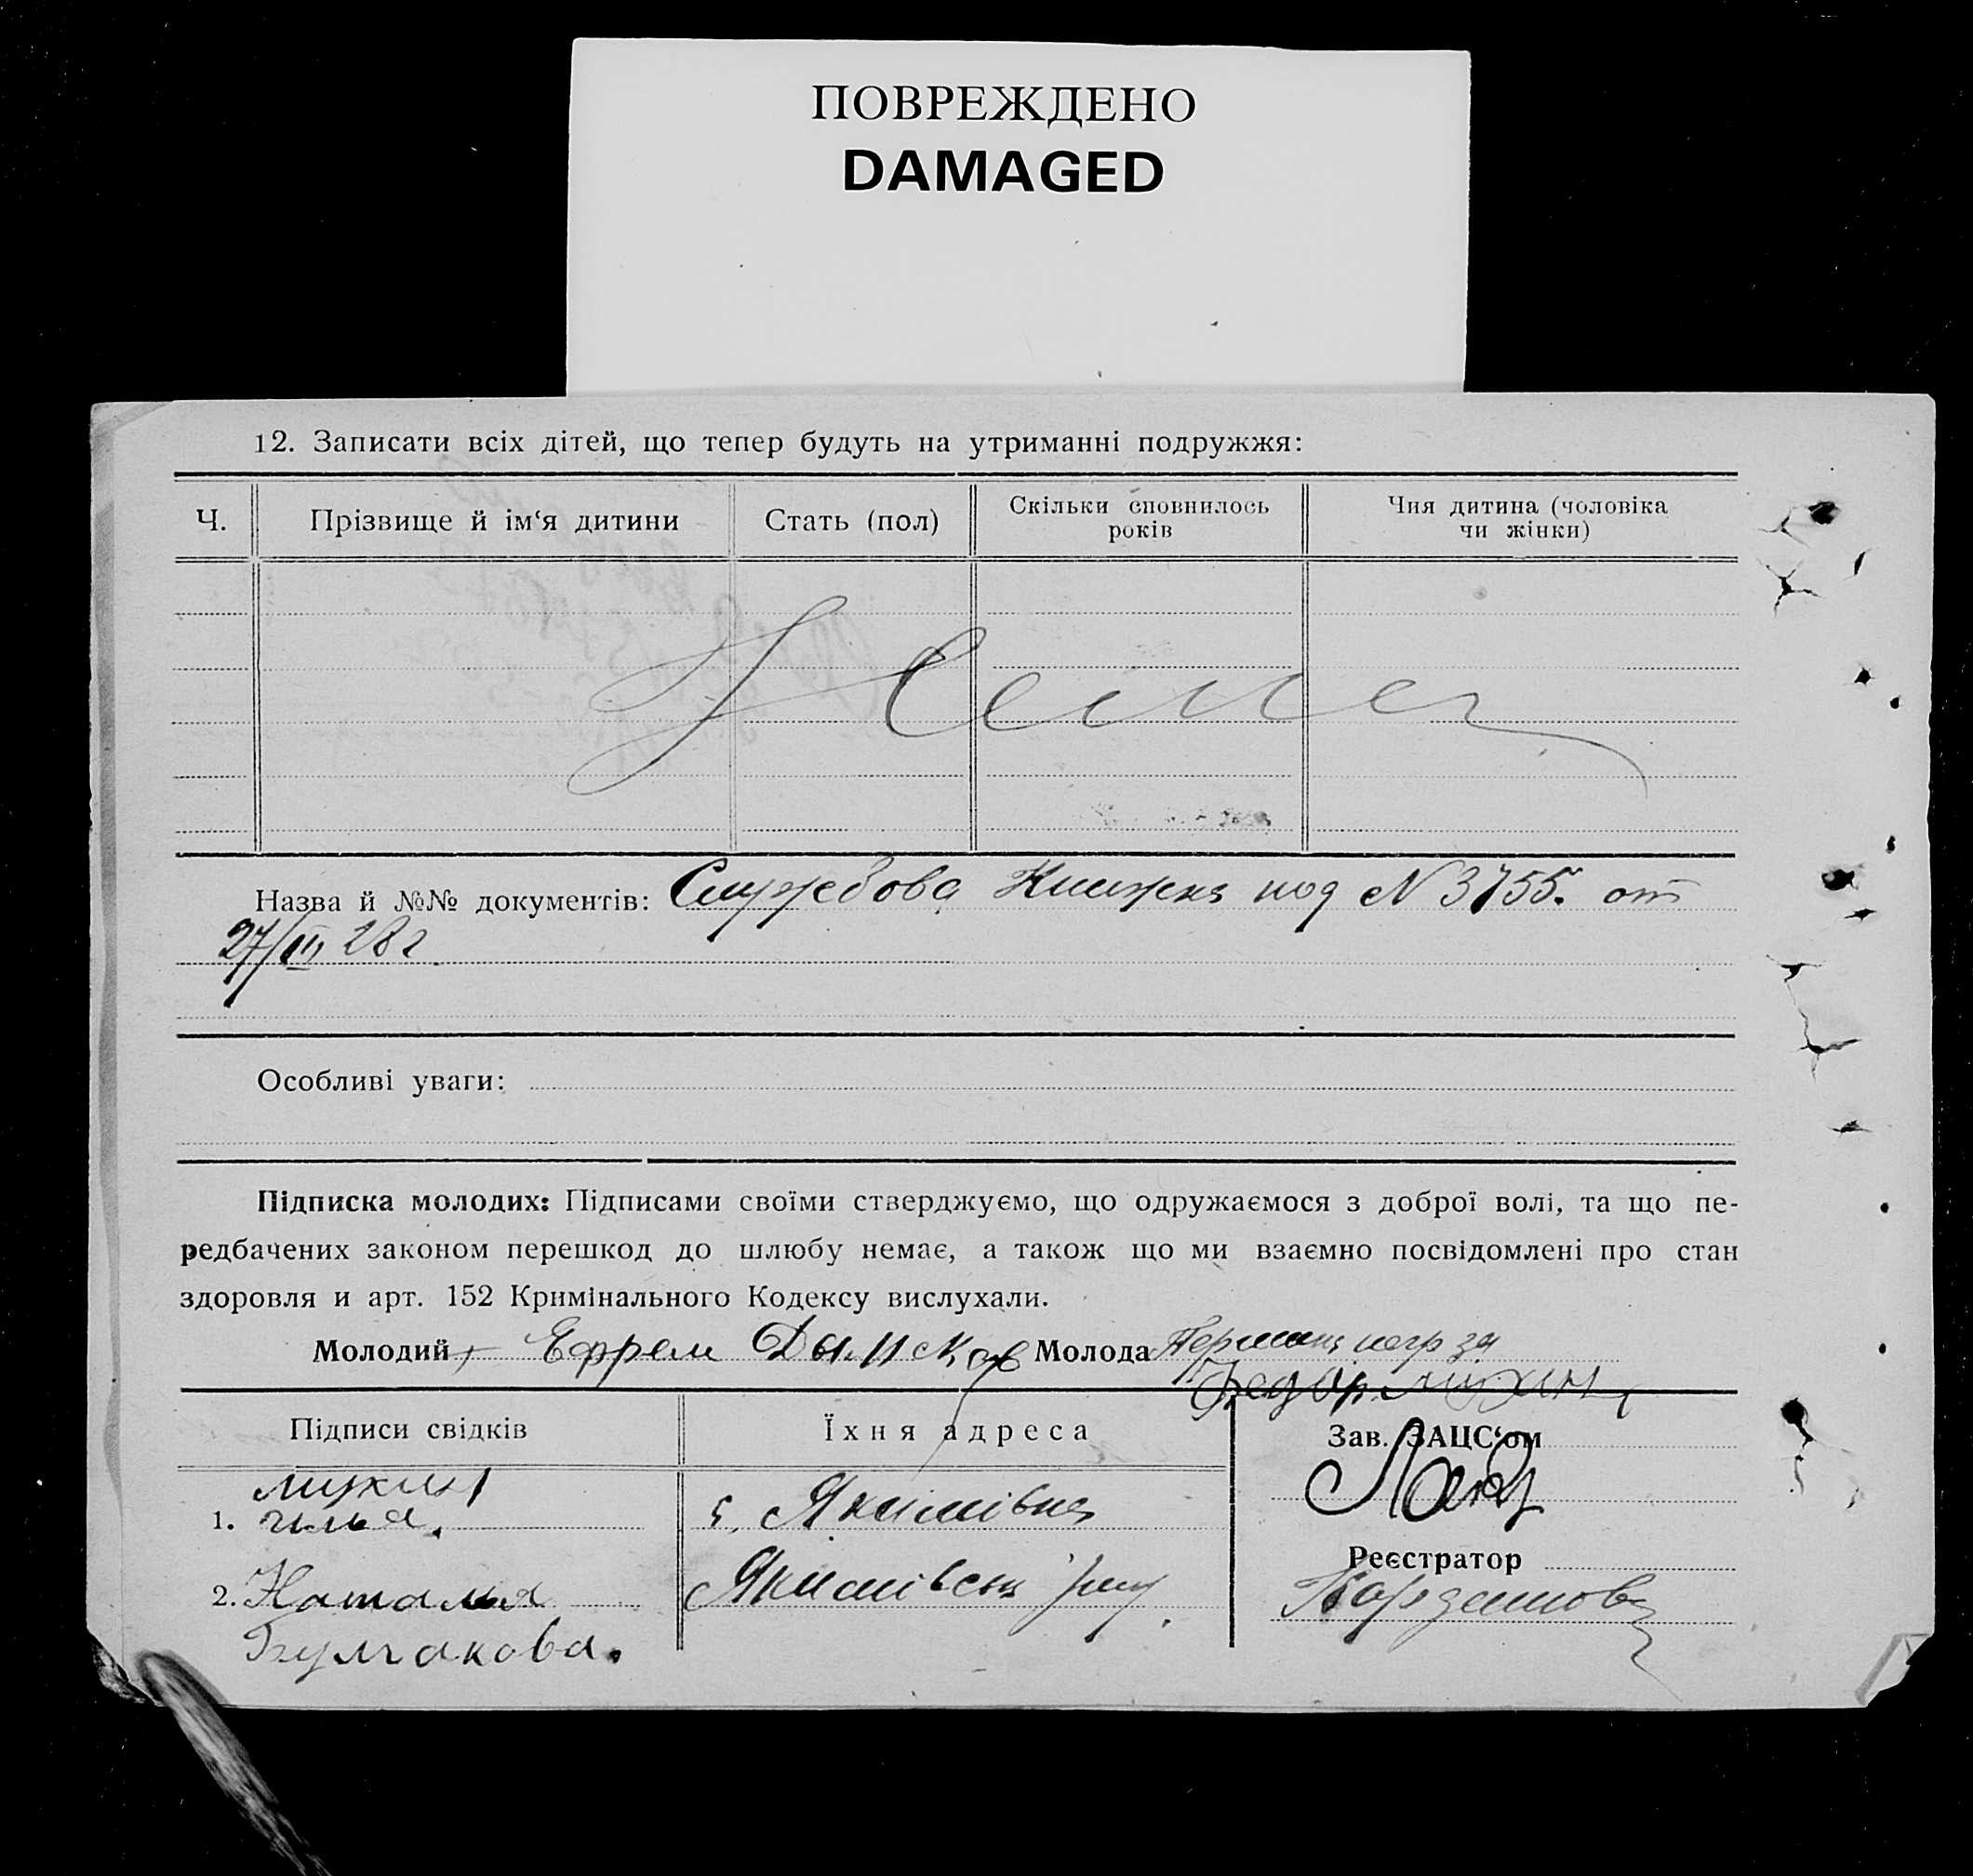 ПОВРЕЖДЕНО
DAMAGED
12. Записати всіх дітей, що тепер будуть на утриманні подружжя:
Ч. Прізвище й ім‘я дитини Стать (пол) Скільки сповнилось років Чия дитина (чоловіка чи жінки)
Назва й №№ документів: Служебова Книжка под N 3755. от
27/III 28 г.
Особливі уваги:
Підписка молодих: Підписами своїми стверджуємо, що одружаємося з доброї волі, та що пе-
редбачених законом перешкод до шлюбу немає, а також що ми взаємно посвідомлені про стан
здоровля и арт. 152 Кримінального Кодексу вислухали.
Молодий Ефрем Молода
Федор Мухин
Підписи свідків Їхня адреса Зав. ЗАЦС‘ом
Мухин
1. Илья. с. Якимівка
Реєстратор
2. Наталья Якимівськ
Булгакова.